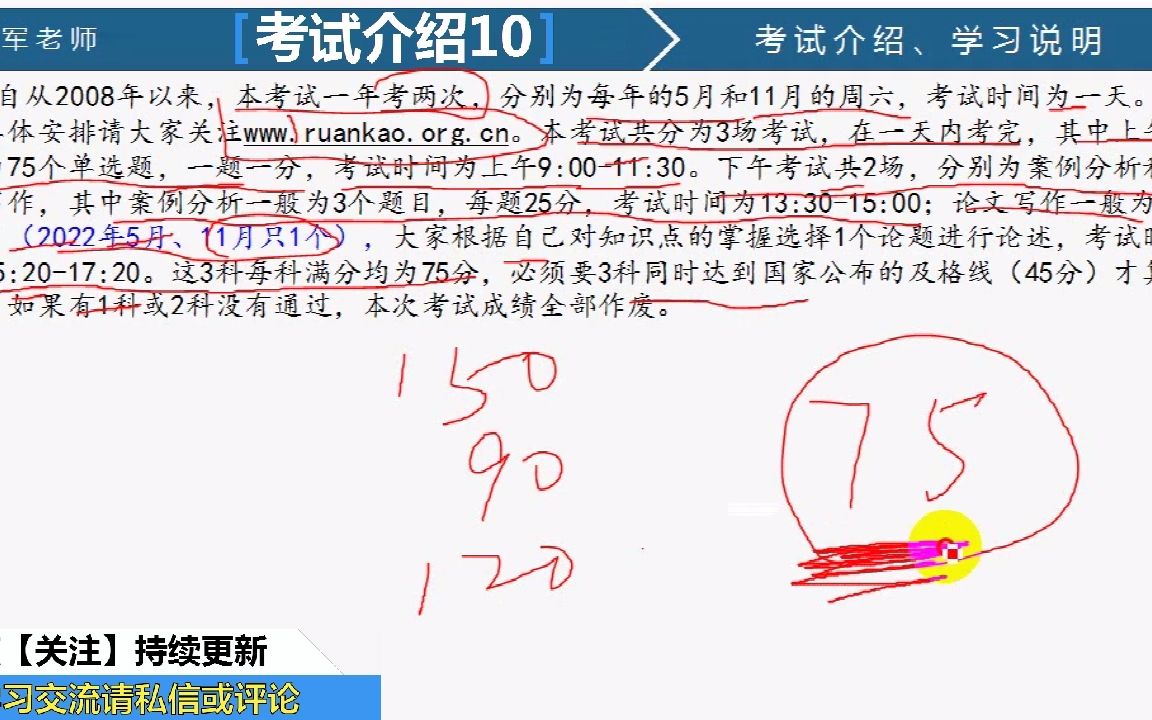 军老师
[考试介绍10]
考试介绍、学习说明
自从2008年以来，本考试一年考两次，分别为每年的5月和11月的周六，考试时间为一天。
体安排请大家关注www.ruankao.org.cn。本考试共分为3场考试，在一天内考完，其中上午
75个单选题，一题一分，考试时间为上午9:00-11:30。下午考试共2场，分别为案例分析和
作，其中案例分析一般为3个题目，每题25分，考试时间为13:30-15:00；论文写作一般为
（2022年5月、11月只1个），大家根据自己对知识点的掌握选择1个论题进行论述，考试时
5:20-17:20。这3科每科满分均为75分，必须要3科同时达到国家公布的及格线（45分）才算
如果有1科或2科没有通过，本次考试成绩全部作废。
150
90
120
75
【关注】持续更新
学习交流请私信或评论